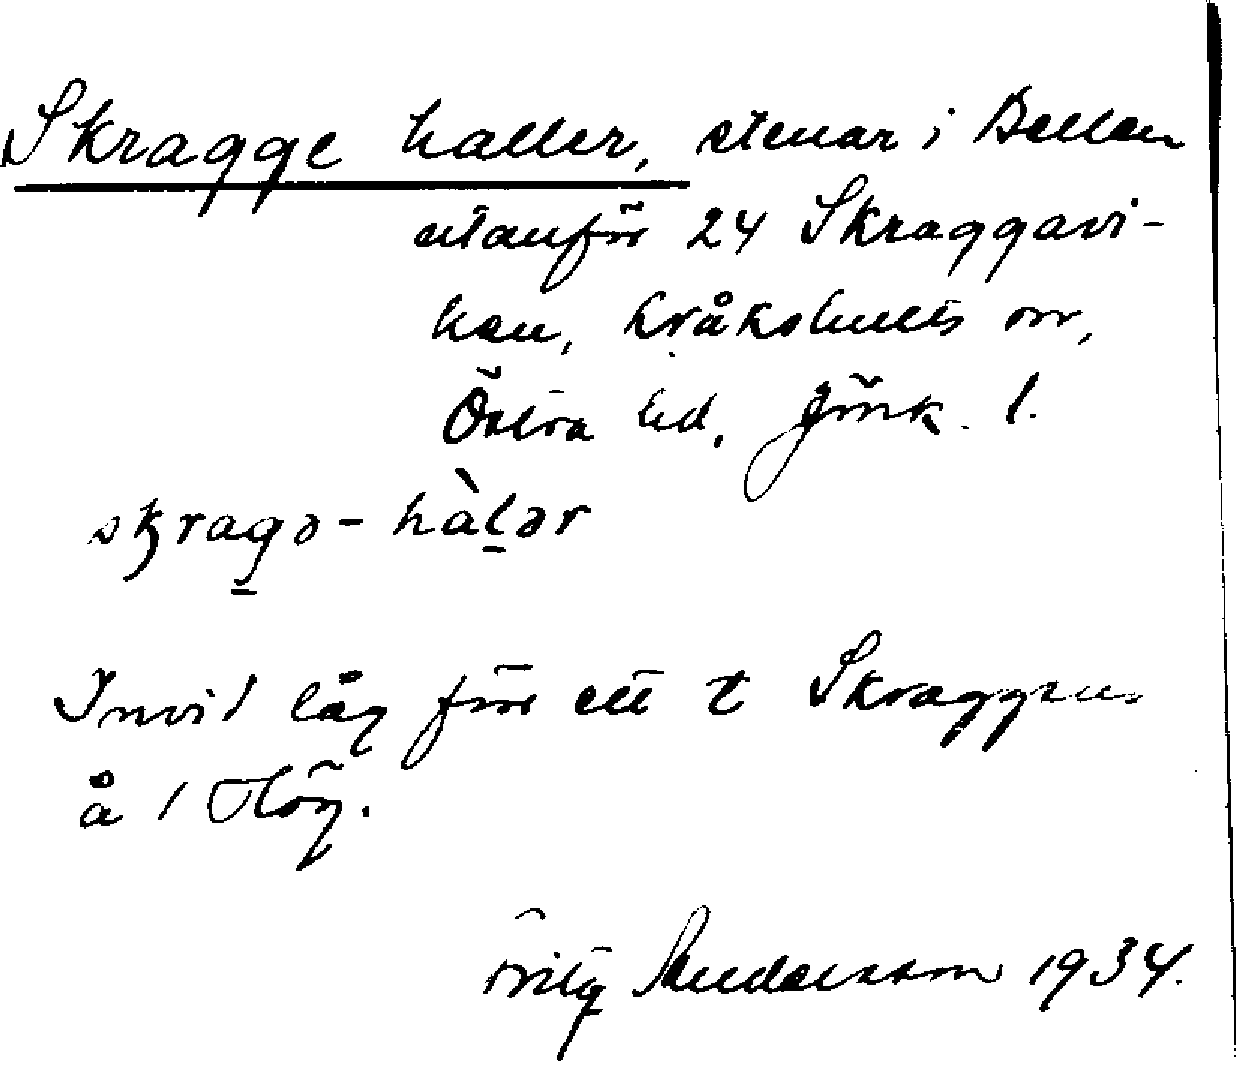 Skragge haller, stenar i Bellen
utanför 24 Skraggavi-
ken, Kråkshults sn,
Östra hd, Jönk. l.
skragə-hàlər
Invid låg för ett t Skraggen
å 1 Hög.
Fritz Andersson 1934.